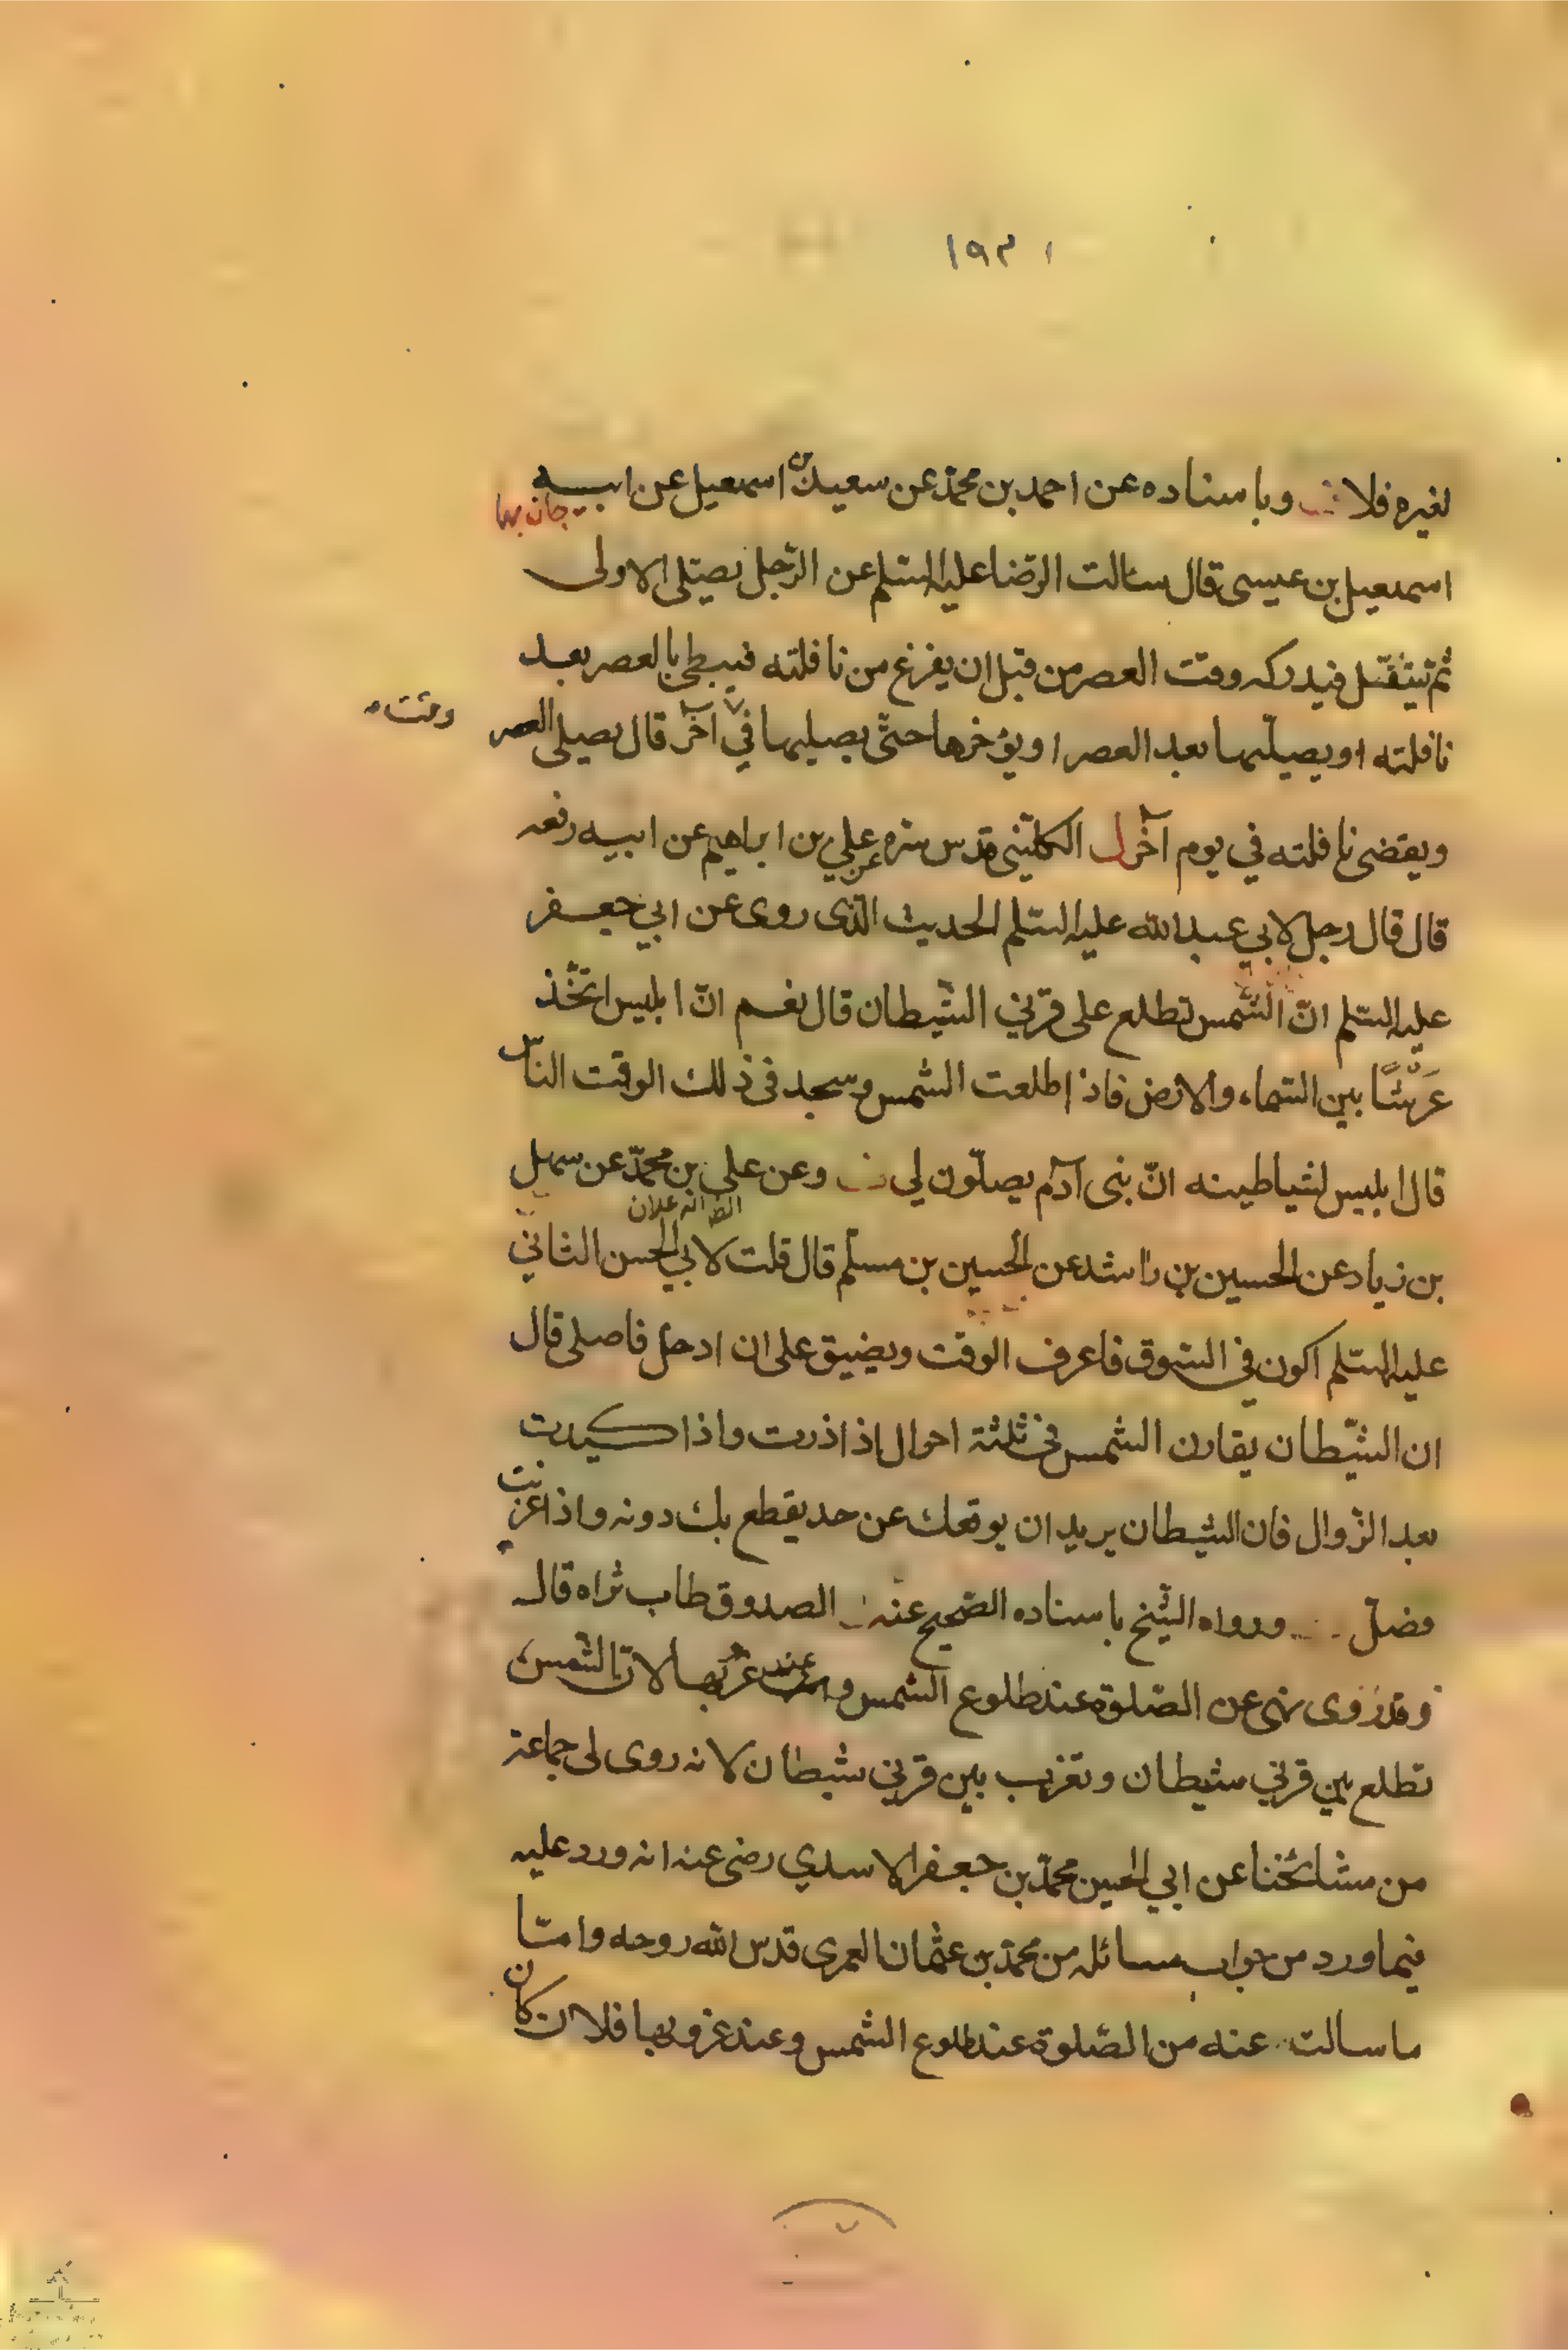 ١٩٢
لغيره فلا وباسناده عن احمد بن محمد عن سعيد بن اسمعيل عن ابيه
اسمعيل بن عيسى قال سالت الرضا عليه السلم عن الرجل يصلى الاولى
ثم يتنفل فيدركه وقت العصر من قبل ان يفرغ من نافلته فيبطى بالعصر بعد
نافلته او يصليها بعد العصر او يؤخرها حتى يصليها في آخر قال يصلى العصر
وقت
ويقضى نافلته في يوم آخر الكلينى قدس سره عن علي بن ابراهيم عن ابيه رفعه
قال قال رجل لابي عبد الله عليه السلم الحديث الذى روى عن ابي جعفر
عليه السلم انّ الشمس تطلع على قرني الشيطان قال نعم انّ ابليس اتخذ
عَرشًا بين السماء والارض فاذا طلعت الشمس وسجد في ذلك الوقت الناس
قال ابليس لشياطينه انّ بنى آدم يصلّون لي وعن على بن محمّد عن سهل
الظ انه علان
بن زياد عن الحسين بن راشد عن الحسين بن مسلم قال قلت لابي الحسن الثاني
عليه السلم اكون في السوق فاعرف الوقت ويضيق على ان ادخل فاصلى قال
ان الشيّطان يقارن الشمس في ثلثة احوال اذا ذرت واذا كبدت
واذا غربت بعد الزوال فان الشيطان يريد ان يوقعك عن حد يقطع بك دونه
فصل ورواه الشيخ باسناده الصحيح عنه الصدوق طاب ثراه قال
وقد روى نهى عن الصلوة عند طلوع الشمس وعند غربها لان الشمس
تطلع بين قرني شيطان وتغرب بين قرني شيطان لانه روى لى جماعة
من مشائخنا عن ابي الحسين محمّد بن جعفر الاسدي رضى عنه انه ورد عليه
فيما ورد من جواب مسائله من محمد بن عثمان العمرى قدس الله روحه وامّا
ما سالت عنه من الصّلوة عند طلوع الشمس وعند غروبها فلان كان